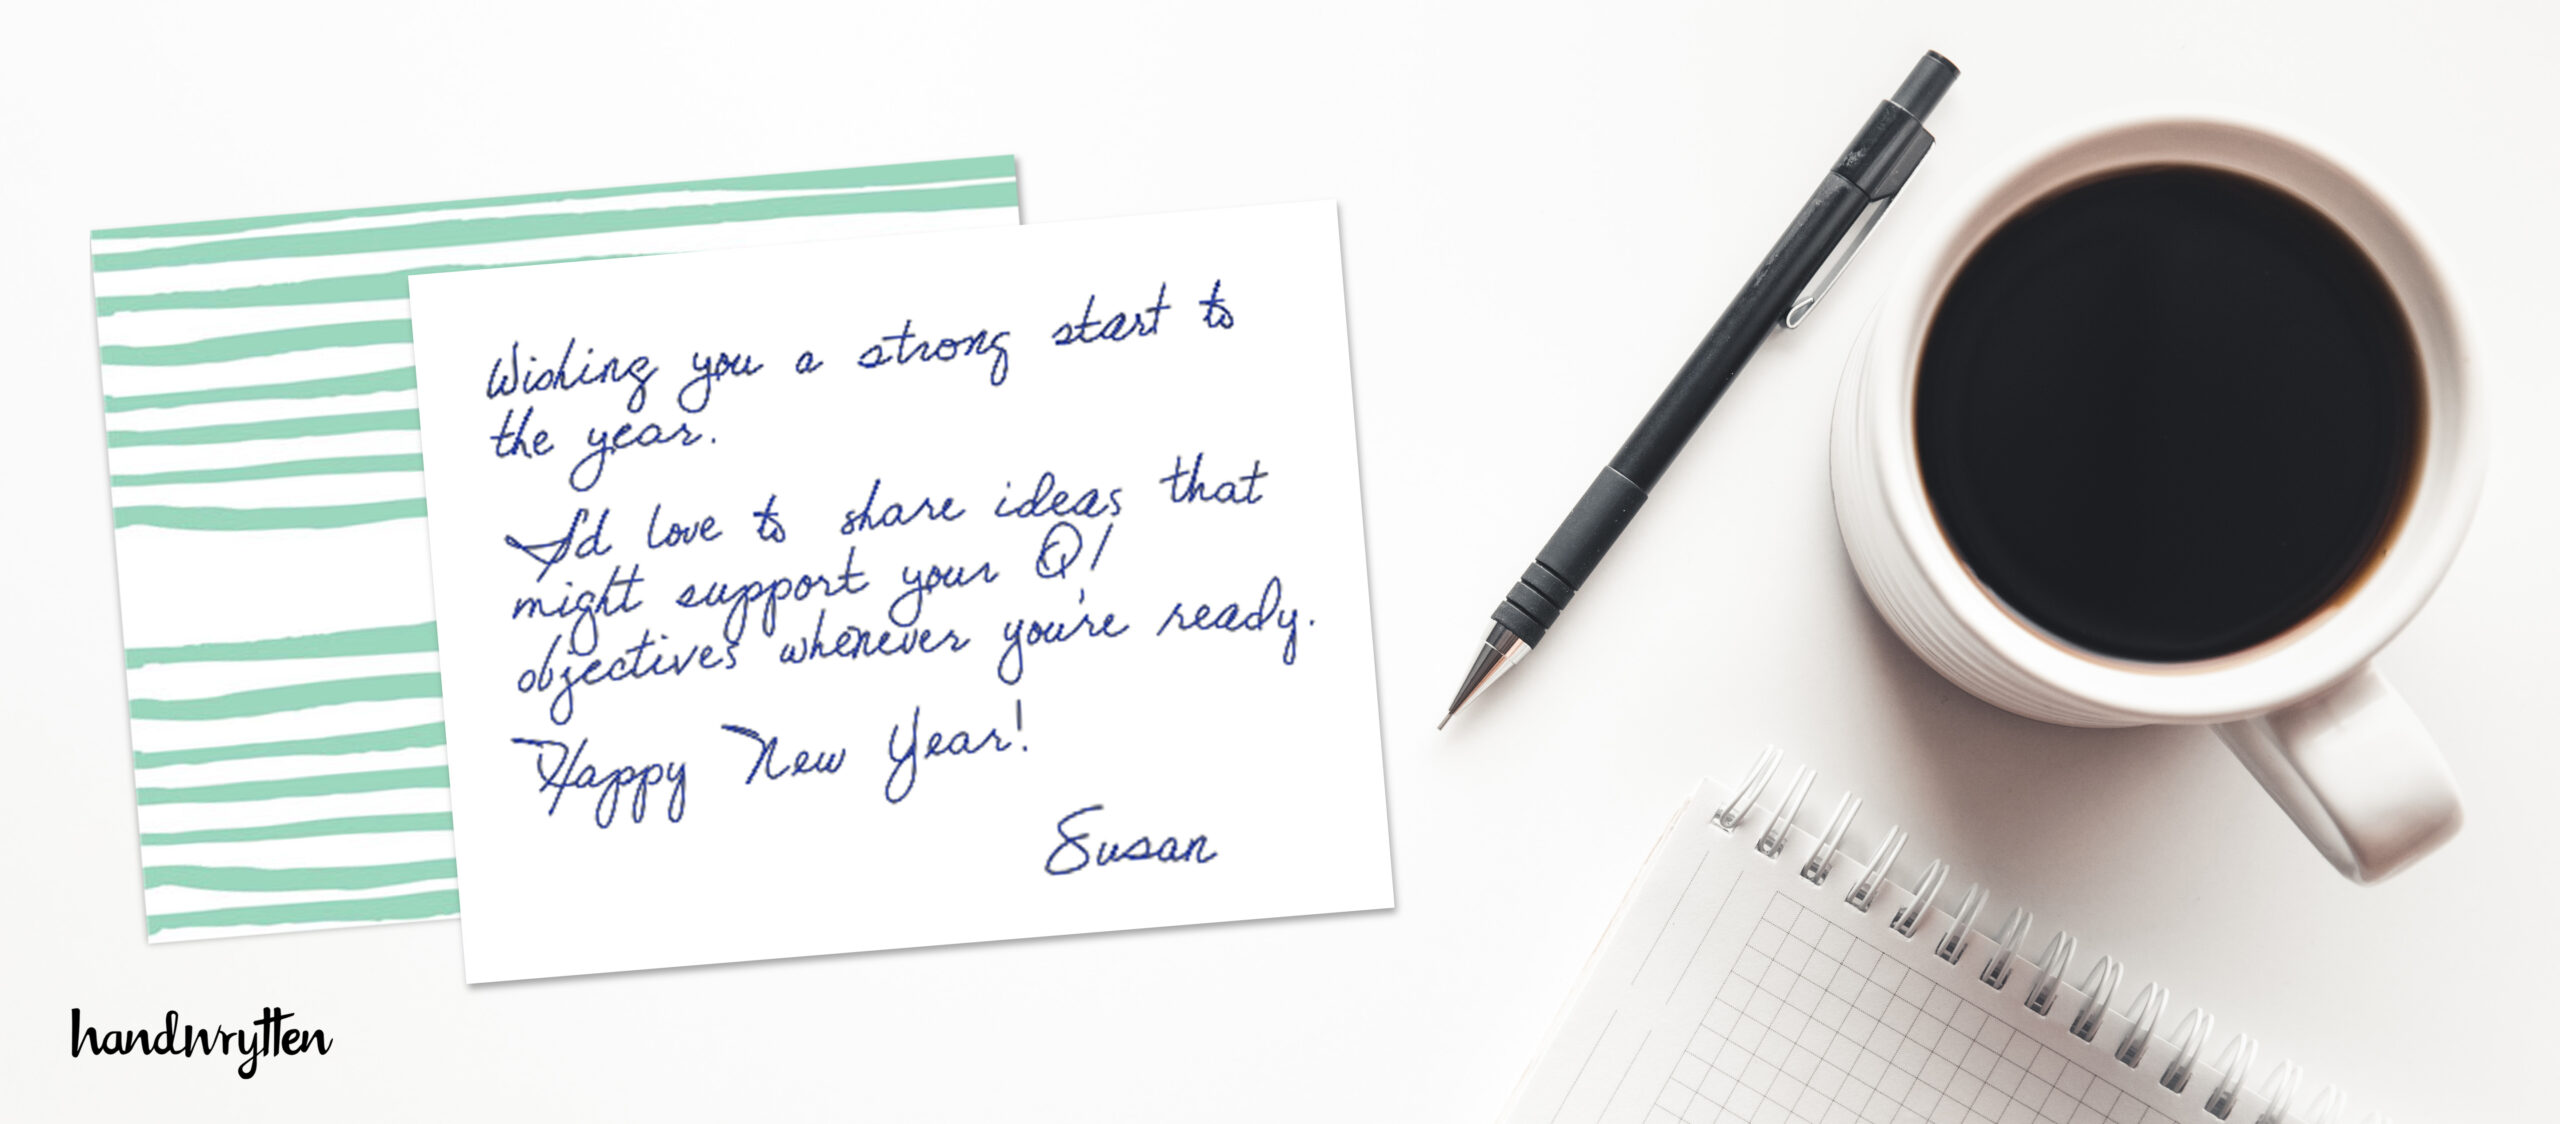 Wishing you a strong start to
the year.
I'd love to share ideas that
might support your Q1
objectives whenever you're ready.
Happy New Year!
Susan
handwrytten